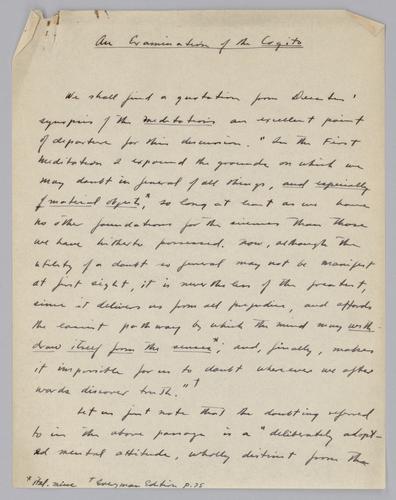 An Examination of the Cogito
We shall find a quotation from Descartes'
synopsis of the Meditations an excellent point
of departure for this discussion. "In the First
Meditation I expound the grounds on which we
may doubt in general of all things, and especially
of material objects,* so long at least as we have
no other foundations for the sciences than those
we have hitherto possessed. Now, although the
utility of a doubt so general may not be manifest
at first sight, it is nevertheless of the greatest,
since it delivers us from all prejudice, and affords
the easiest pathway by which the mind may with-
draw itself from the senses*; and, finally, makes
it impossible for us to doubt wherever we after-
wards discover truth."†
Let us first note that the doubting referred
to in the above passage is a "deliberately adopt-
ed mental attitude, wholly distinct from the
* Ital. mine † Everyman Edition p. 75